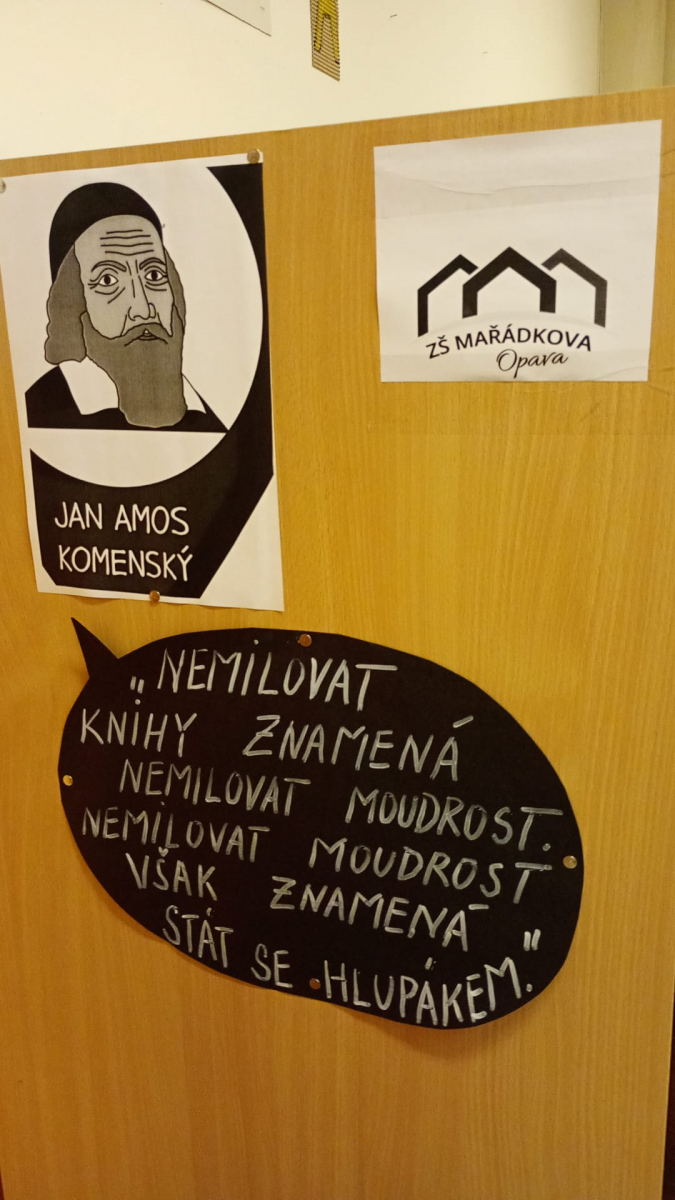 ZŠ MAŘÁDKOVA
Opava
JAN AMOS
KOMENSKÝ
„NEMILOVAT
KNIHY ZNAMENÁ
NEMILOVAT MOUDROST.
NEMILOVAT MOUDROST
VŠAK ZNAMENÁ
STÁT SE HLUPÁKEM."